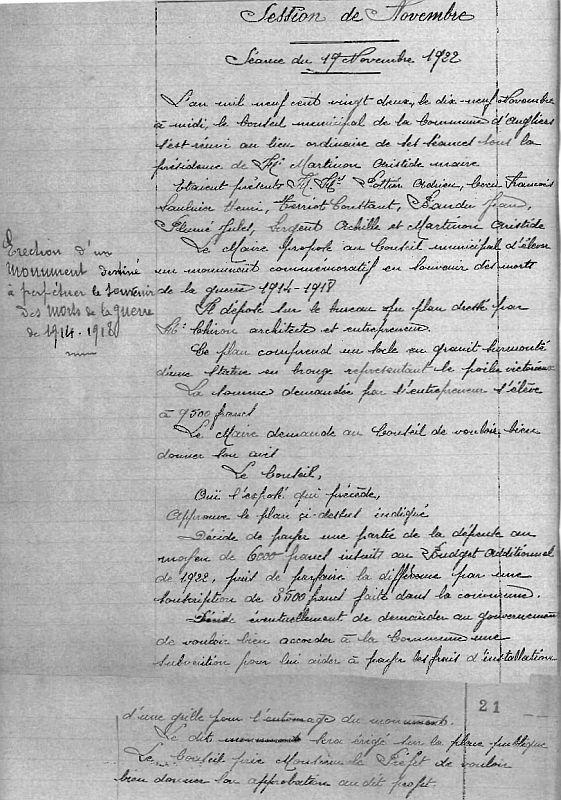 Session de Novembre
Séance du 19 Novembre 1922
L'an mil neuf cent vingt deux, le dix-neuf Novembre
à midi, le Conseil municipal de la Commune d'Angliers
s'est réuni au lieu ordinaire de ses séances sous la
présidence de Mr Martinon Aristide maire
Etaient présents M. Mrs Pottier Adrien, François
Saulnier Henri, Terriot Constant, Jean,
Plumé Jules, Sergent Achille et Martinon Aristide
Erection d'un
monument destiné
à perpétuer le souvenir
des morts de la guerre
de 1914-1918
Le Maire propose au Conseil municipal d'élever
un monument commémoratif en souvenir des morts
de la guerre 1914-1918
Il dépose sur le bureau un plan dressé par
Mr Chiron architecte et entrepreneur.
Ce plan comprend un socle en granit surmonté
d'une statue en bronze représentant le poilu victorieux
La somme demandée par l'entrepreneur s'élève
à 9500 francs
Le Maire demande au Conseil de vouloir bien
donner son avis
Le Conseil,
Ouï l'exposé qui précède,
Approuve le plan ci-dessus indiqué
Décide de payer une partie de la dépense au
moyen de 6000 francs inscrits au Budget additionnel
de 1922, puis de parfaire la différence par une
souscription de 3500 francs faite dans la commune.
Décide éventuellement de demander au gouvernement
de vouloir bien accorder à la Commune une
subvention pour lui aider à payer les frais d'installation
21
d'une grille pour l'entourage du monument.
Le dit monument sera érigé sur la place publique
Le Conseil prie Monsieur le Préfet de vouloir
bien donner son approbation au dit projet.